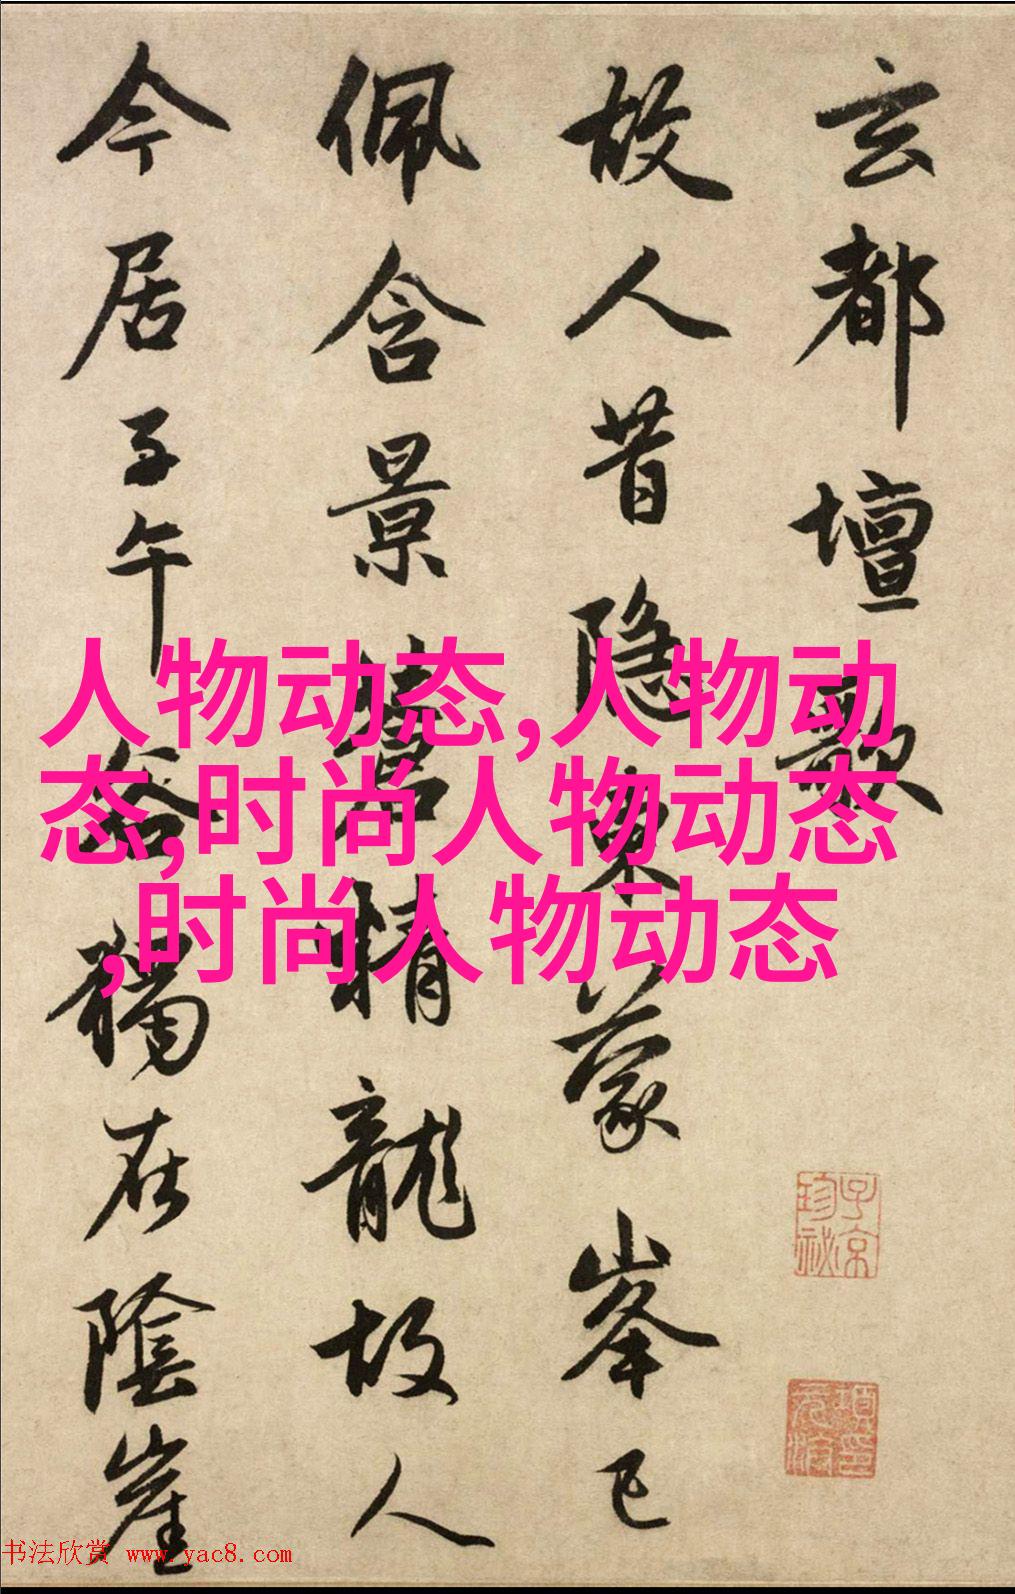 玄都壇歌
故人昔隐東蒙峯已
佩含景蒼精龍故人
今居子午谷獨在陰崖
人物动态,人物动
态,时尚人物动态
,时尚人物动态
子京
珍祕
书法欣赏 www.yac8.com